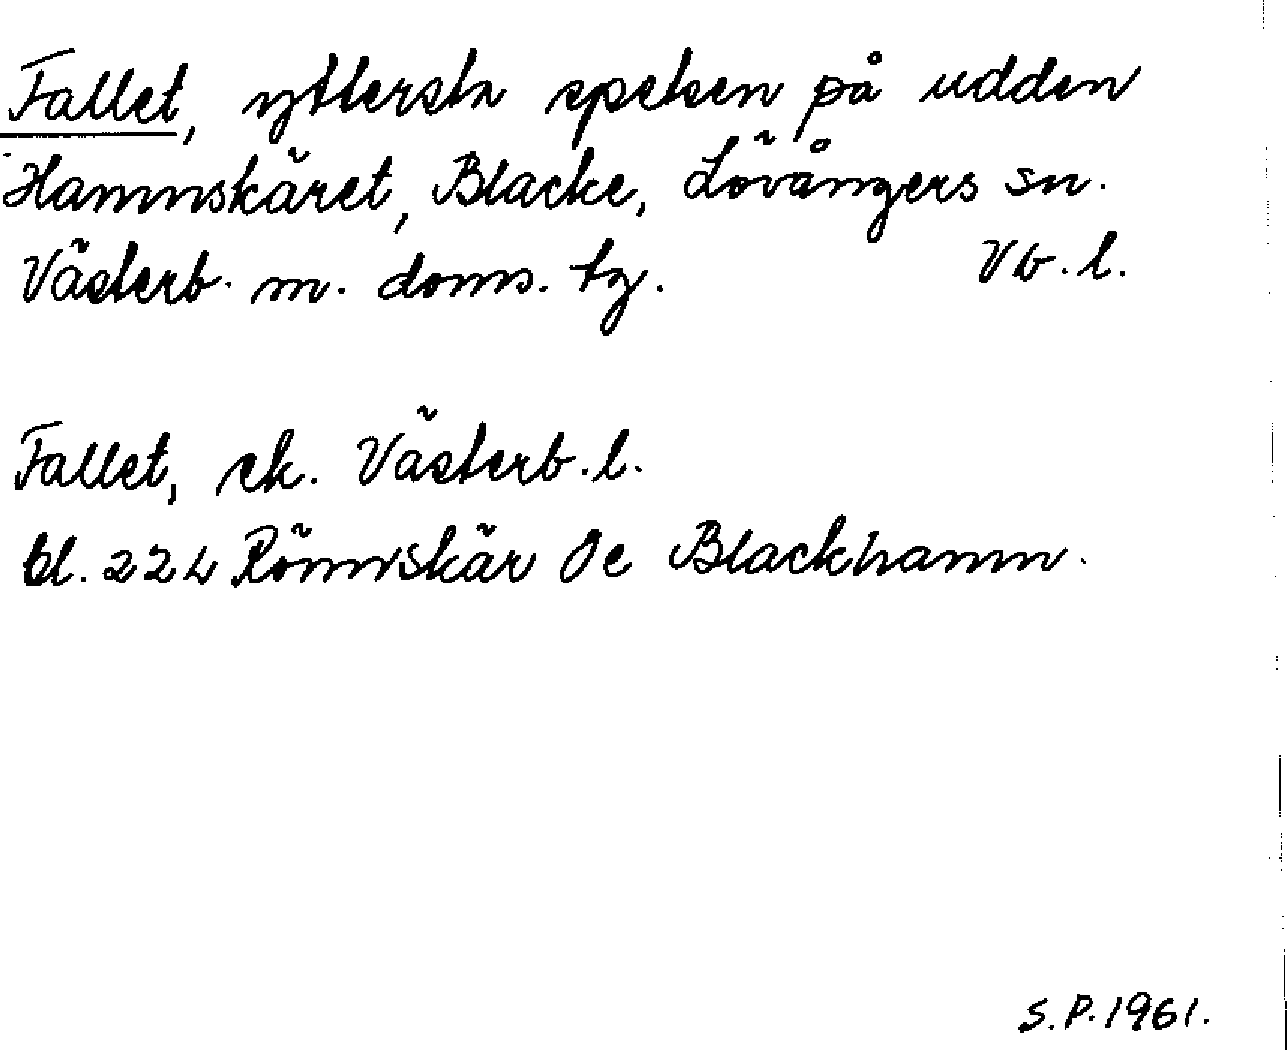 Fallet, yttersta spetsen på udden
Hamnskäret, Blacke, Lövångers sn.
Västerb. m. doms. tg. Vb. l.
Fallet, ek. Västerb. l.
bl. 224 Rönnskär Oc Blackhamn.
S.P. 1961.